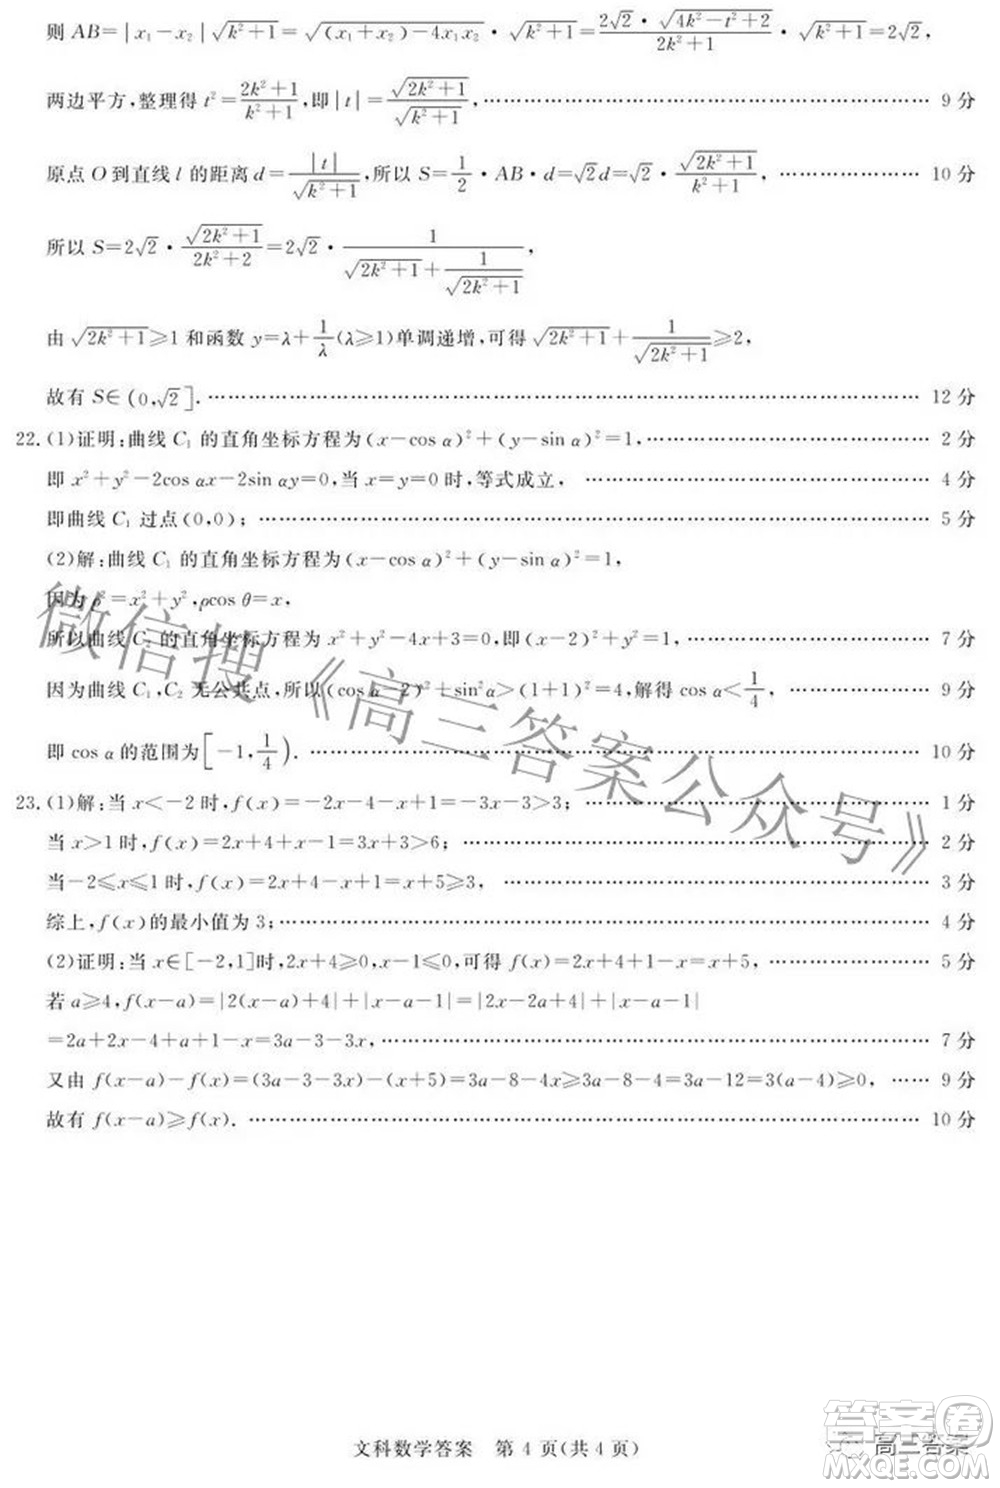 则 AB=|x₁-x₂|√(k²+1)=√((x₁+x₂)-4x₁x₂)•√(k²+1)=(2√2•√(4k²-t²+2))/(2k²+1)•√(k²+1)=2√2,
两边平方,整理得 t²=(2k²+1)/(k²+1),即|t|=√(2k²+1)/√(k²+1),…………9 分
原点 O 到直线 l 的距离 d=|t|/√(k²+1),所以 S=1/2•AB•d=√2d=√2•√(2k²+1)/(k²+1),…………10 分
所以 S=2√2•√(2k²+1)/(2k²+2)=2√2•1/(√(2k²+1)+1/√(2k²+1)),
由√(2k²+1)≥1 和函数 y=λ+1/λ(λ≥1)单调递增,可得√(2k²+1)+1/√(2k²+1)≥2,
故有 S∈(0,√2].…………12 分
22.(1)证明:曲线 C₁ 的直角坐标方程为(x-cos α)²+(y-sin α)²=1,…………2 分
即 x²+y²-2cos αx-2sin αy=0,当 x=y=0 时,等式成立,…………4 分
即曲线 C₁ 过点(0,0);…………5 分
(2)解:曲线 C₁ 的直角坐标方程为(x-cos α)²+(y-sin α)²=1,
因为 ρ²=x²+y²,ρcos θ=x,
所以曲线 C₂ 的直角坐标方程为 x²+y²-4x+3=0,即(x-2)²+y²=1,…………7 分
因为曲线 C₁,C₂ 无公共点,所以(cos α-2)²+sin²α>(1+1)²=4,解得 cos α<1/4,…………9 分
即 cos α 的范围为[-1,1/4).…………10 分
23.(1)解:当 x<-2 时,f(x)=-2x-4-x+1=-3x-3>3;…………1 分
当 x>1 时,f(x)=2x+4+x-1=3x+3>6;…………2 分
当-2≤x≤1 时,f(x)=2x+4-x+1=x+5≥3,…………3 分
综上,f(x)的最小值为 3;…………4 分
(2)证明:当 x∈[-2,1]时,2x+4≥0,x-1≤0,可得 f(x)=2x+4+1-x=x+5,…………5 分
若 a≥4,f(x-a)=|2(x-a)+4|+|x-a-1|=|2x-2a+4|+|x-a-1|
=2a+2x-4+a+1-x=3a-3-3x,…………7 分
又由 f(x-a)-f(x)=(3a-3-3x)-(x+5)=3a-8-4x≥3a-8-4=3a-12=3(a-4)≥0,……9 分
故有 f(x-a)≥f(x).…………10 分
微信搜《高三答案公众号》
文科数学答案 第 4 页(共 4 页)
答案卷
高三答案
MXQE.COM